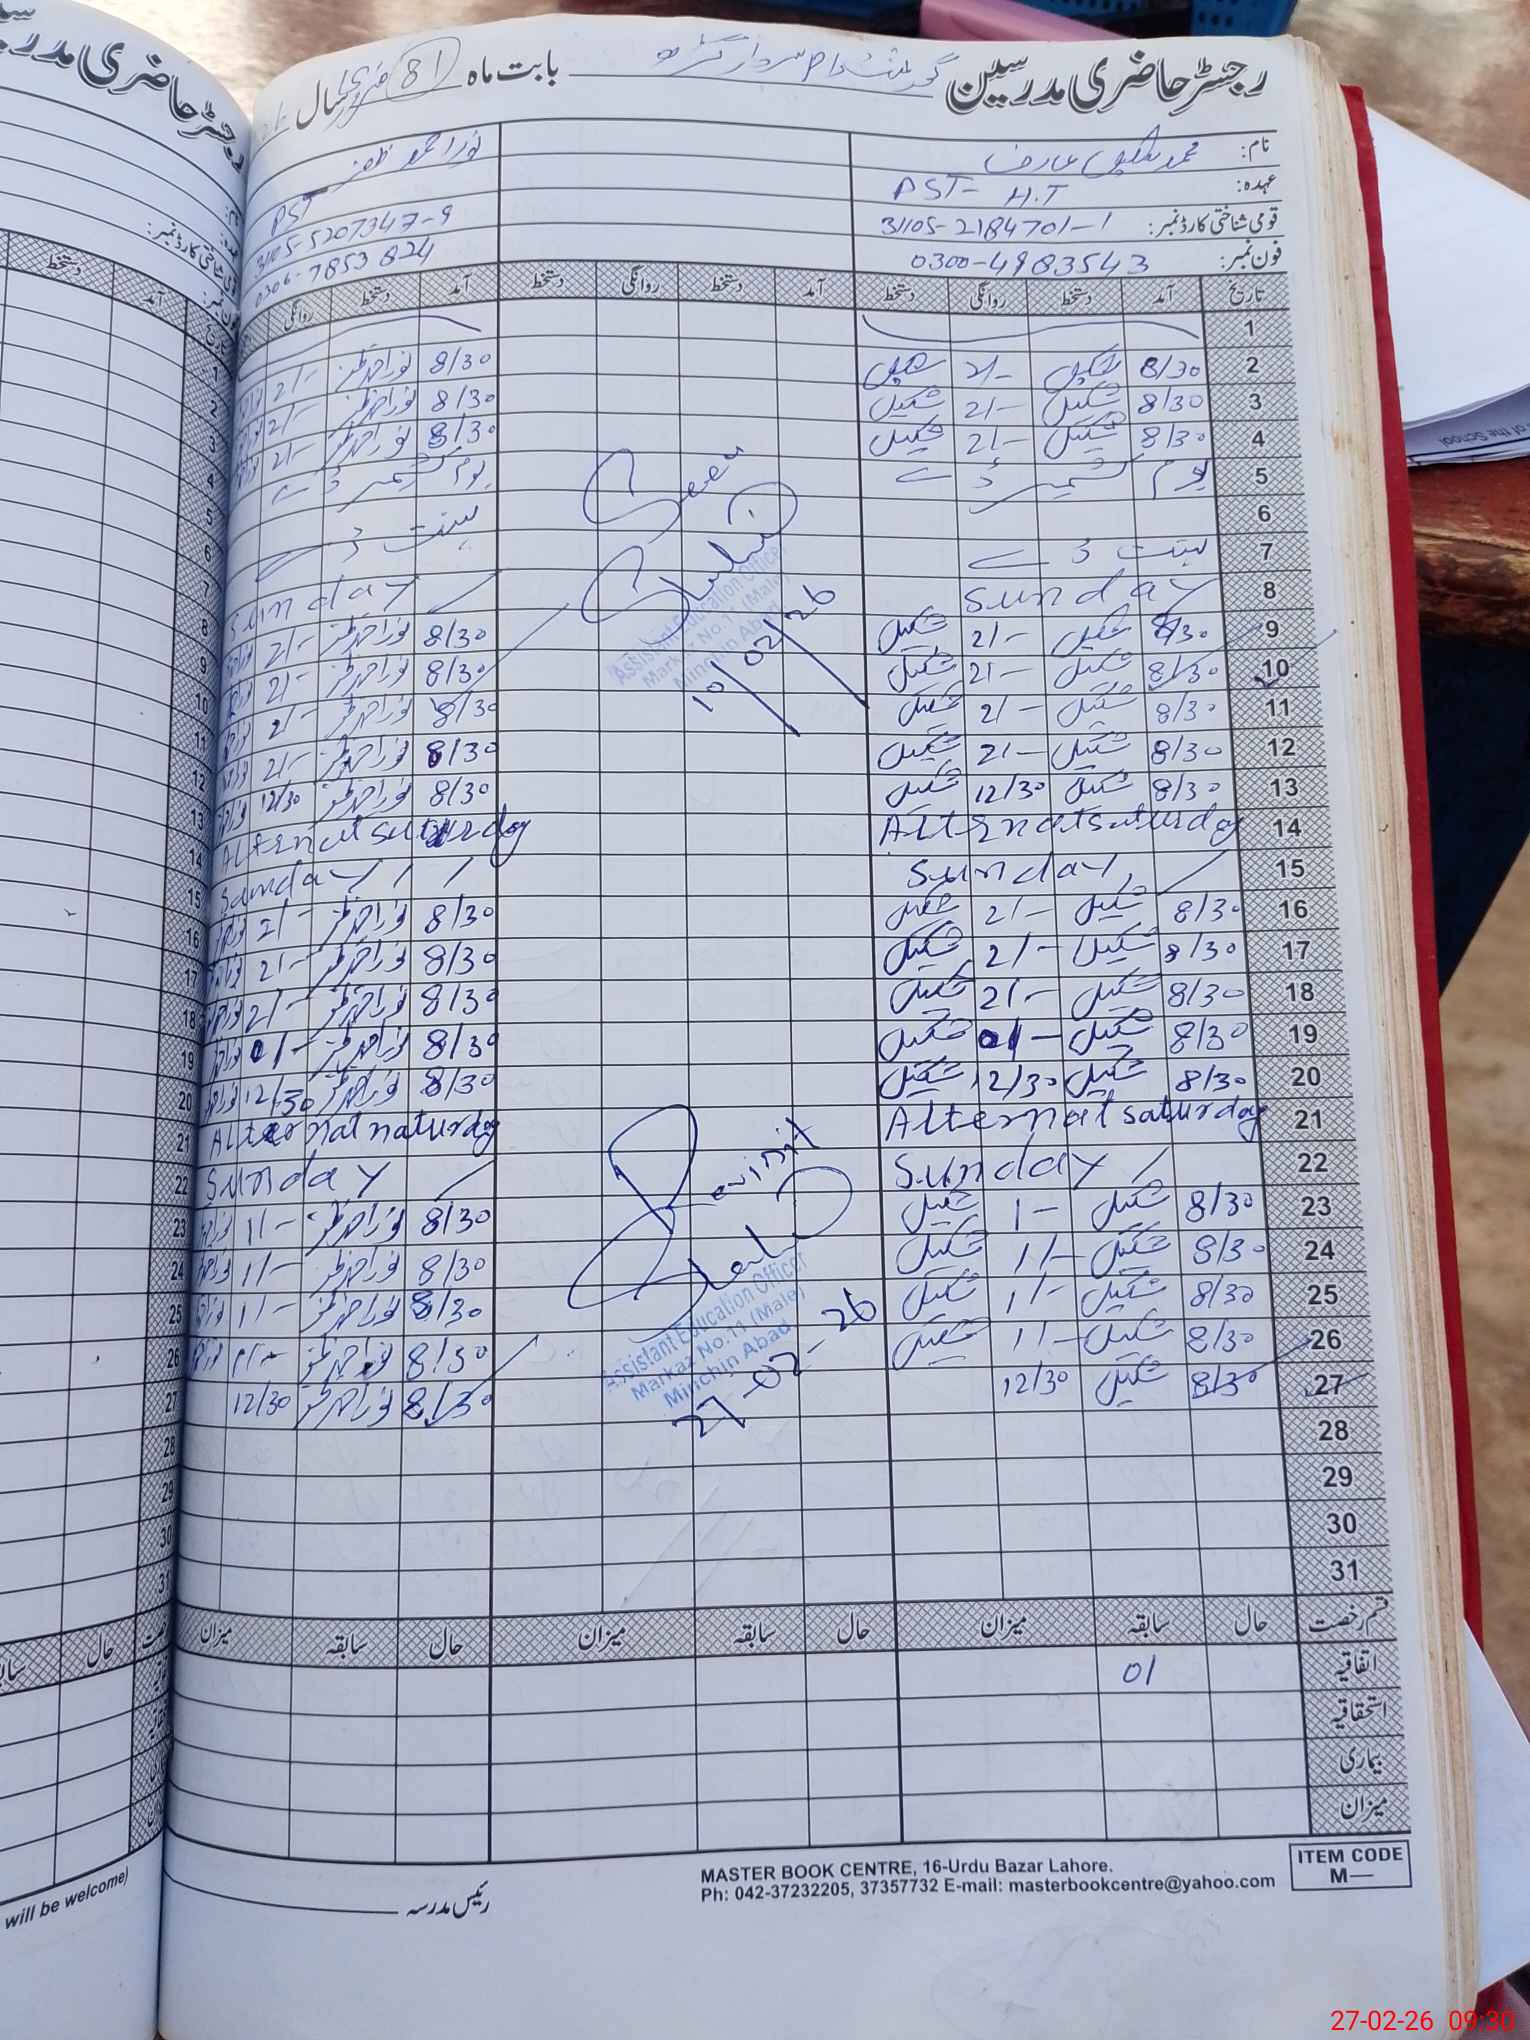 رجسٹر حاضری مدرسین گورنمنٹ سردار گڑھ بابت ماہ فروری سال
81
نام: محمد شکیل عارف نور احمد ظفر
عہدہ: PST- H.T PST
قومی شناختی کارڈ نمبر: 31105-2184701-1 31105-5207347-9
فون نمبر: 0300-4983543 0306-7853824
تاریخ آمد دستخط روانگی دستخط آمد دستخط روانگی دستخط آمد دستخط روانگی
1
2 8/30 شکیل 2/- شکیل 8/30 نور احمد ظفر 2/-
3 8/30 شکیل 2/- شکیل 8/30 نور احمد ظفر 2/-
4 8/30 شکیل 2/- شکیل 8/30 نور احمد ظفر 2/-
5 یوم کشمیر ڈے یوم کشمیر ڈے
6 بسنت ڈے
7 بسنت ڈے
8 Sunday Sunday
9 8/30 شکیل 2/- شکیل 8/30 نور احمد ظفر 2/-
10 8/30 شکیل 2/- شکیل 8/30 نور احمد ظفر 2/-
11 8/30 شکیل 2/- شکیل 8/30 نور احمد ظفر 2/-
12 8/30 شکیل 2/- شکیل 8/30 نور احمد ظفر 2/-
13 8/30 شکیل 12/30 شکیل 8/30 نور احمد ظفر 12/30
14 Alternatsaturday Alternatsaturday
15 Sunday Sunday
16 8/30 شکیل 2/- شکیل 8/30 نور احمد ظفر 2/-
17 8/30 شکیل 2/- شکیل 8/30 نور احمد ظفر 2/-
18 8/30 شکیل 2/- شکیل 8/30 نور احمد ظفر 2/-
19 8/30 شکیل 01- شکیل 8/30 نور احمد ظفر 01-
20 8/30 شکیل 12/30 شکیل 8/30 نور احمد ظفر 12/30
21 Alternatsaturday Alternatnaturday
22 Sunday Sunday
23 8/30 شکیل 1- شکیل 8/30 نور احمد ظفر 1/-
24 8/30 شکیل 1/- شکیل 8/30 نور احمد ظفر 1/-
25 8/30 شکیل 1/- شکیل 8/30 نور احمد ظفر 1/-
26 8/30 شکیل 1/- شکیل 8/30 نور احمد ظفر
27 8/30 شکیل 12/30 8/30 نور احمد ظفر 12/30
28
29
30
31
Seen
Assistant Education Officer
Markaz No.11 (Male)
Minchin Abad
10/02/26
Assistant Education Officer
Markaz No.11 (Male)
Minchin Abad
27-02-26
قسم رخصت حال سابقہ میزان حال سابقہ میزان حال سابقہ میزان
اتفاقیہ 01
استحقاقیہ
بیماری
میزان
رئیس مدرسہ
MASTER BOOK CENTRE, 16-Urdu Bazar Lahore.
Ph: 042-37232205, 37357732 E-mail: masterbookcentre@yahoo.com
ITEM CODE
M—
will be welcome)
of the School
27-02-26 09:30